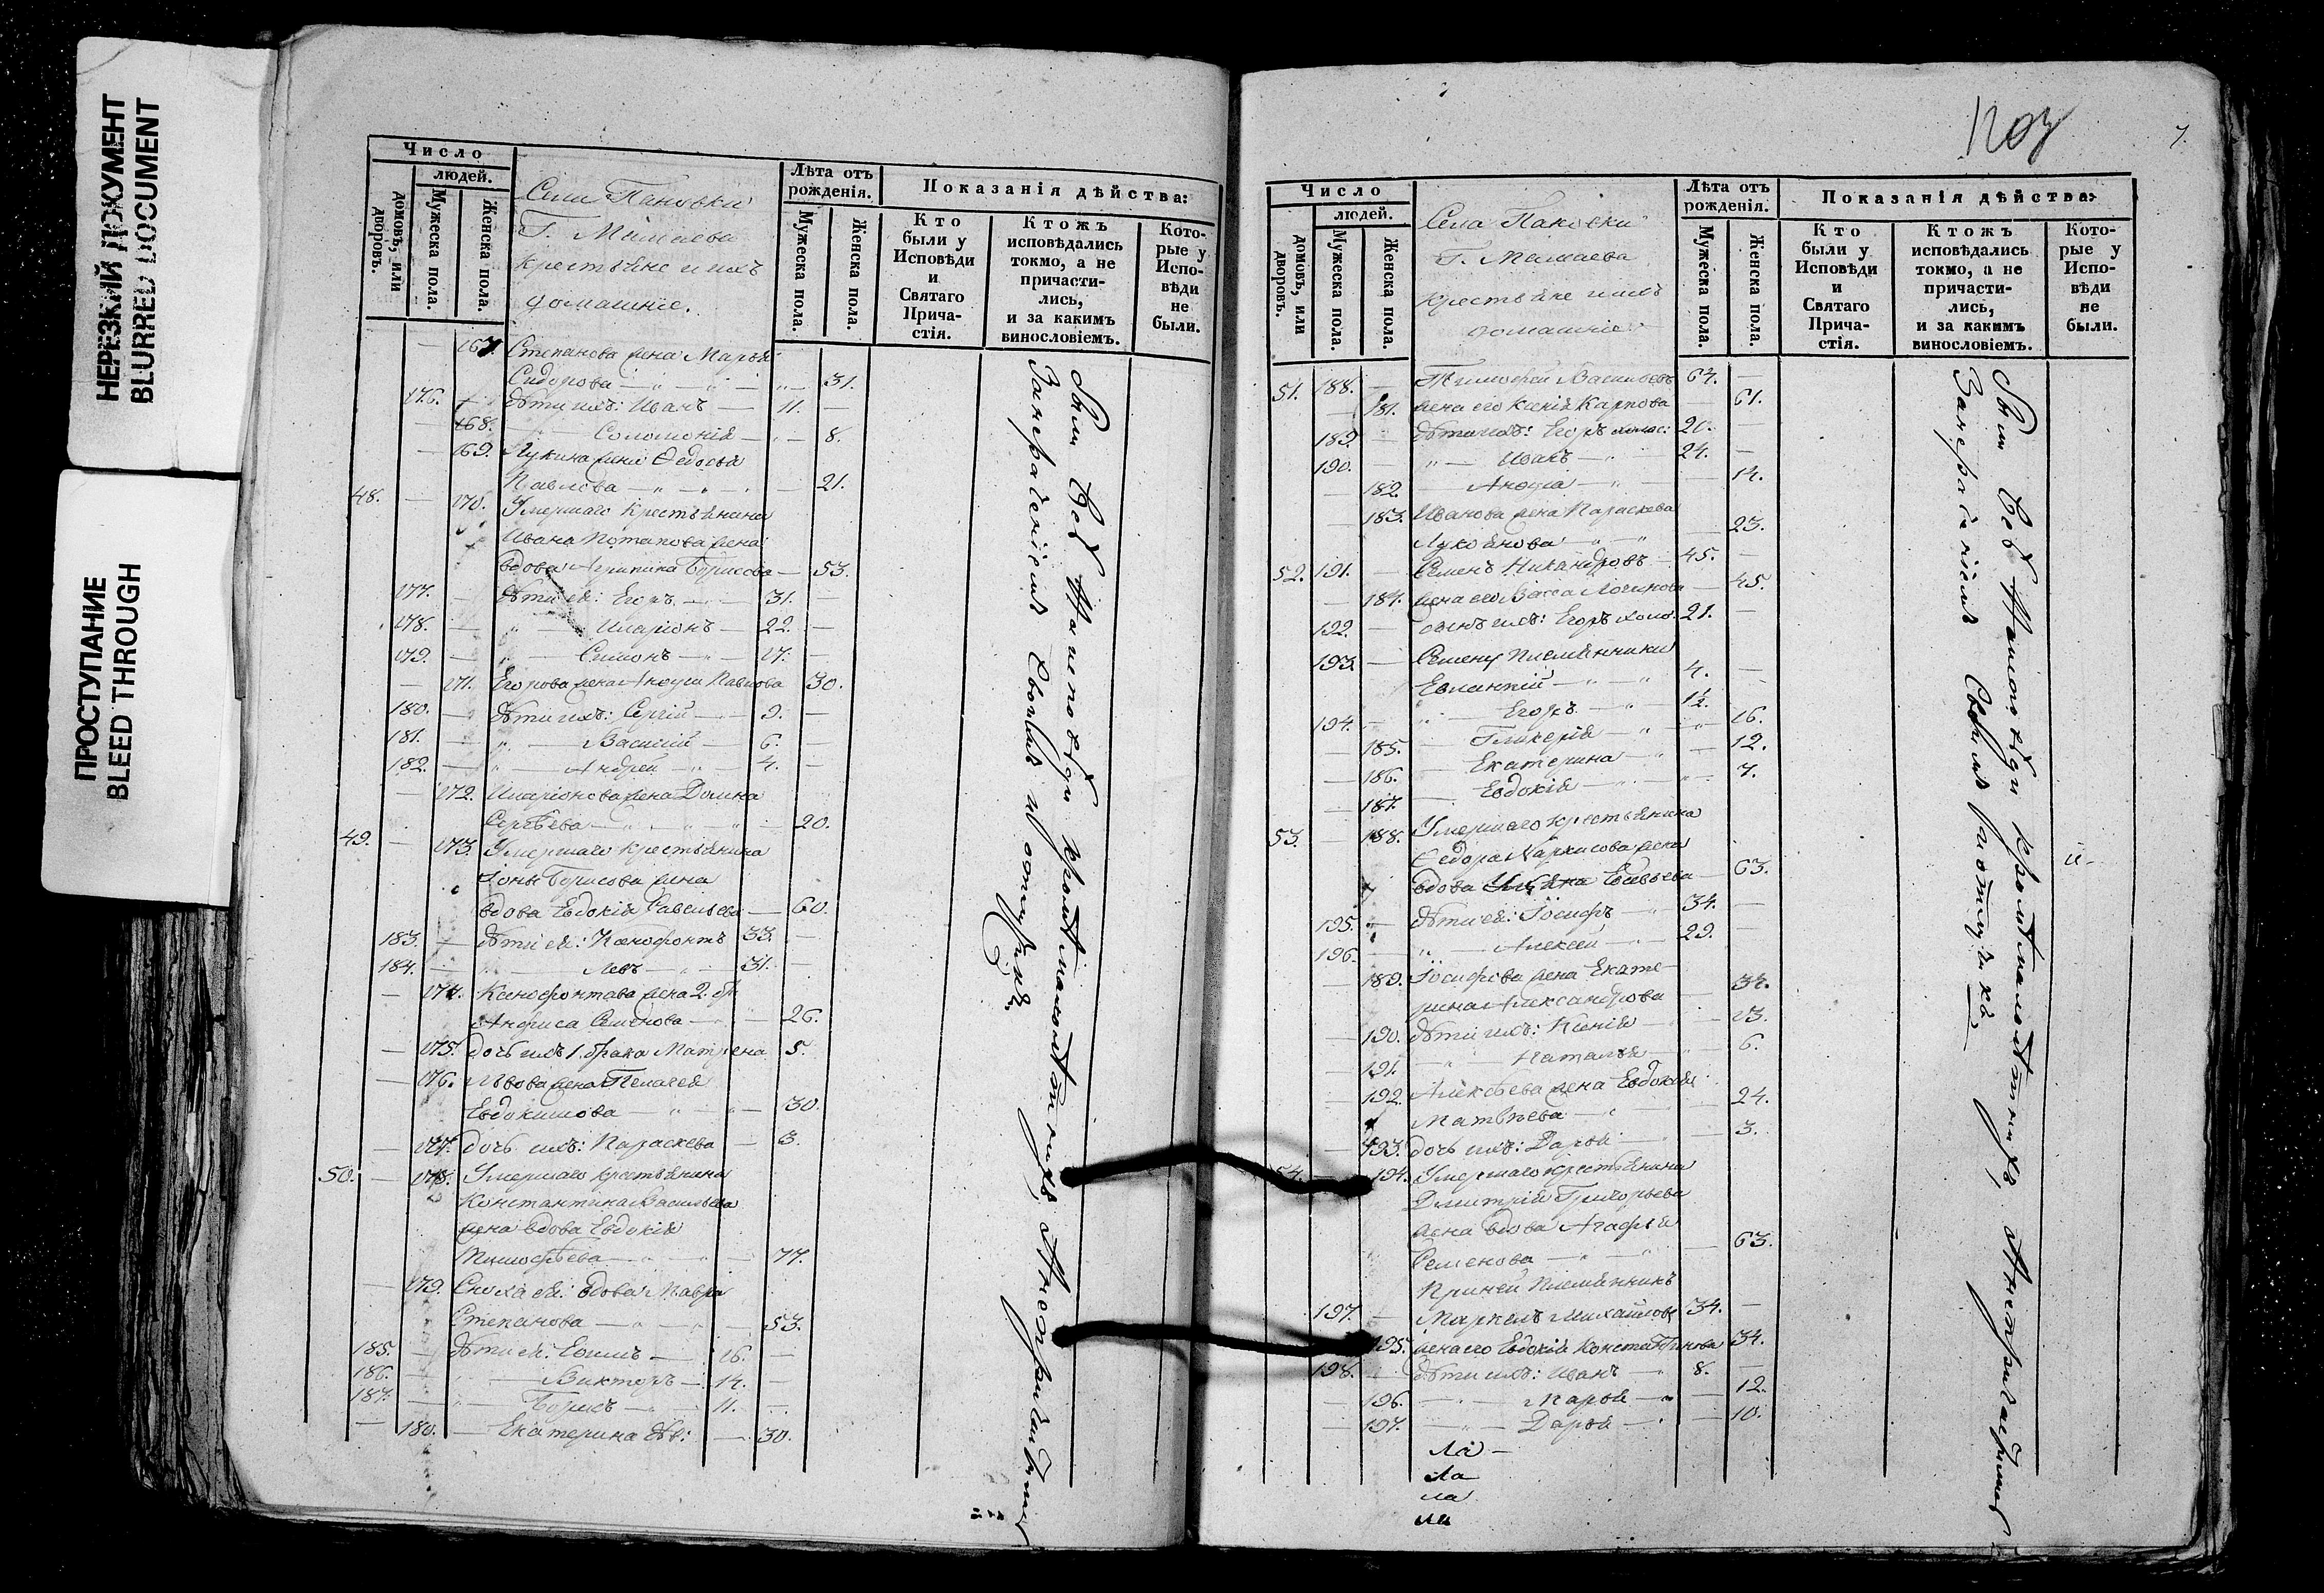 НЕРЕЗКИЙ ДОКУМЕНТ
BLURRED DOCUMENT
ПРОСТУПАНИЕ
BLEED THROUGH
Число
людей.
домовъ, или дворовъ.
Мужеска пола.
Женска пола.
Села Пановки
Г. Мамаева
крестьяне и ихъ
домашніе.
Лѣта отъ рожденія.
Мужеска пола.
Женска пола.
Показанія дѣйства:
Кто были у Исповѣди и Святаго Прича-стія.
Ктожъ исповѣдались токмо, а не причасти-лись, и за какимъ винословіемъ.
Кото-рые у Испо-вѣди не были.
— 167. Степанова жена Марья
Сидорова — 31.
176. — дѣти ихъ: Иванъ — 11. —
— 168. Соломонія — 8.
— 169. Лукина жена Ѳедосья
Павлова — 21.
48. — 170. Умершаго крестьянина
Ивана Потапова жена
вдова Агрипина Борисова — 53.
177. — дѣти ея: Егоръ — 31. —
178. — Иларіонъ — 22. —
179. — Симонъ — 17. —
— 171. Егорова жена Павлова 30.
180. — дѣти ихъ: Сергій — 9. —
181. — Василій — 6. —
182. — Андрей — 4. —
— 172. Иларіонова жена Домна
Сергѣева — 20.
49. — 173. Умершаго крестьянина
Іоны Борисова жена
вдова Евдокія Савельева — 60.
183. — дѣти ея: Ксенофонтъ 33. —
184. — Левъ — 31. —
— 174. Ксенофонтова жена 2. бр.
Анфиса Семенова — 26.
— 175. дочь ихъ 1. брака Матрена 5.
— 176. Львова жена Пелагея
Евдокимова — 30.
— 177. дочь ихъ: Параскева — 3.
50. — 178. Умершаго крестьянина
Константина Васильева
жена вдова Евдокія
Тимофѣева — 77.
— 179. Сноха ея: вдова Мавра
Степанова — 53.
185. — дѣти ея: Ефимъ — 16. —
186. — Викторъ — 14. —
187. — Борисъ — 11. —
— 180. — Екатерина дѣв: — 30.
Сіи всѣ на исповѣди кромѣ малолѣтнихъ,
7.
Число
людей.
домовъ, или дворовъ.
Мужеска пола.
Женска пола.
Села Пановки
Г. Мамаева
крестьяне и ихъ
домашніе
Лѣта отъ рожденія.
Мужеска пола.
Женска пола.
Показанія дѣйства:
Кто были у Исповѣди и Святаго Прича-стія.
Ктожъ исповѣдались токмо, а не причасти-лись, и за какимъ винословіемъ.
Кото-рые у Испо-вѣди не были.
51. 188. — Тимофей Васильевъ 64. —
— 181. жена его Ксенія Карпова — 61.
189. — дѣти ихъ: Егоръ холос: 20. —
190. — Иванъ — 24. —
— 182. — 14.
— 183. Иванова жена Параскева
Лукоянова — 23.
52. 191. — Семенъ Никандровъ — 45. —
— 184. жена его Васса Логинова — 45.
192. — сынъ ихъ: Егоръ холо: 21. —
193. — Семену племянники
Евлампій — 4. —
194. — Егоръ — 1½. —
— 185. — Гликерія — 16.
— 186. — Екатерина — 12.
— 187. — Евдокія — 7.
53. — 188. Умершаго крестьянина
Ѳедора Наркисова жена
вдова Евсѣева — 63.
195. — дѣти ея: Іосифъ — 34. —
196. — Алексѣй — 29. —
— 189. Іосифова жена Екате-
рина Александрова — 34.
— 190. дѣти ихъ: Ксенія — 13.
— 191. — Наталья — 6.
— 192. Алексѣева жена Евдокія
Матвѣева — 24.
— 193. дочь ихъ: Дарья — 3.
54. — 194. Умершаго крестьянина
Дмитрія Григорьева
жена вдова Агафья
Семенова — 63.
При ней племянникъ
197. — Маркелъ Михайловъ 34. —
— 195. жена его Евдокія Константинова 34.
198. — дѣти ихъ: Иванъ — 8. —
— 196. — Марья — 12.
— 197. — Дарья — 10.
Сіи всѣ на исповѣди кромѣ малолѣтнихъ,